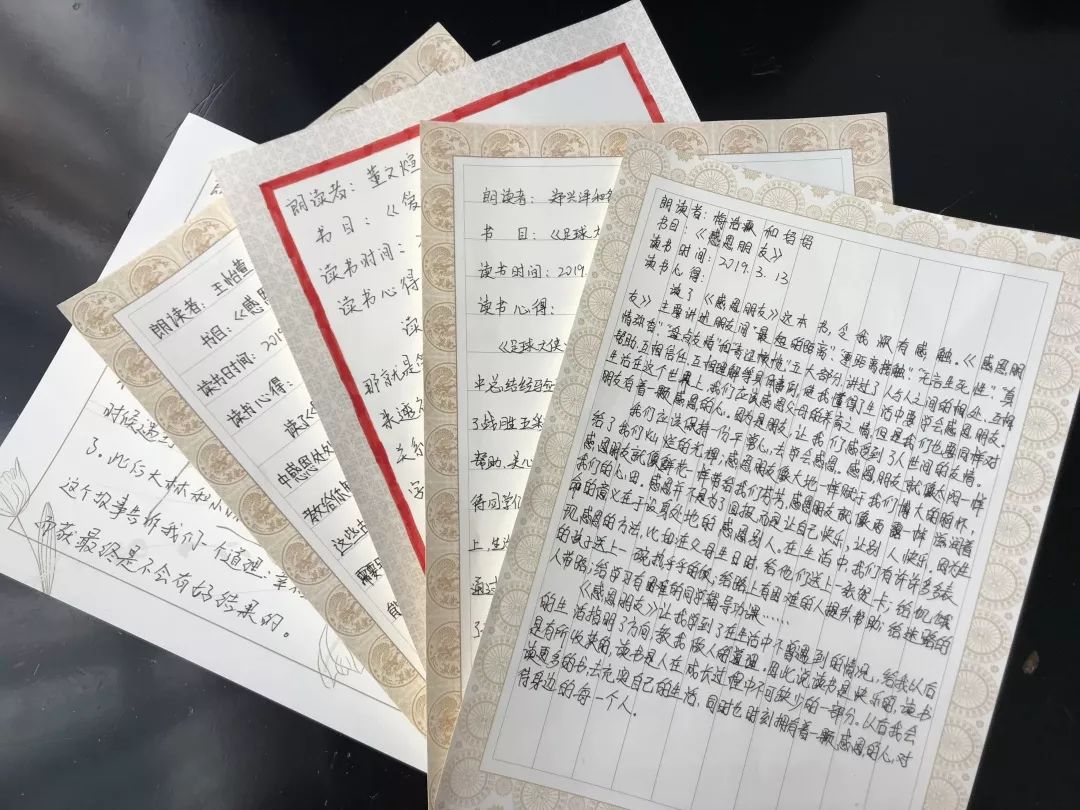 时候遇
了。此后大林和
这个故事告诉我们一个道理：
而获最终是不会有好结果的。
朗读者：王怡萱
书目：《感恩
读书日时间：201
读书心得：
读了《
中感恩处处
教给你
这些
需要
朗读者：董又煊
书目：《爱
读书时间：
读书心得
读
那就是
来通
关系
字
朗读者：郑兴泽和
书目：《足球大
读书时间：2019.
读书心得：
《足球大侠
中总结经验
了战胜五
帮助，关心
得同学们
上，生
通过
了
朗读者：梅浩瀚和妈妈
书目：《感恩朋友》
读书时间：2019.3.13
读书心得：
读了《感恩朋友》这本书，令我深有感触。《感恩朋
友》主要讲述朋友间“最短的距离”“零距离接触”“无话生死性”“真
情弥香”“盘点友情”“和青涩懊悔”五大部分，讲述了人与人之间的相处、互相
帮助、互相信任、互相理解等具体事例，使我懂得了生活中要学会感恩朋友。
生活在这个世界上，我们应该感恩父母的养育之情，但是我们也要同样对
朋友有着一颗感恩的心。因为是朋友，让我们感受到了人世间的友情。
我们应该保持一份平常心，去学会感恩。感恩朋友就像太阳一样
给了我们灿烂的光辉，感恩朋友像大地一样赋予我们博大的胸怀，
感恩朋友就像鲜花一样带给我们芬芳，感恩朋友就像雨露一样滋润着
我们的心田。感恩并不是为了回报，而是让自己快乐，让别人快乐，因为生
命的意义在于设身处地的感恩别人。在生活中，我们有许许多多表
现感恩的方法，比如：在父母生日时，给他们送上一张贺卡；给饥饿
的孩子送上一碗热乎乎的饭；给路上有困难的人提供帮助；给迷路的
人带路；给学习有困难的同学辅导功课……
《感恩朋友》让我学到了在生活中不曾遇到的情况，给我以后
的生活指明了方向，教我做人的道理。因此说读书是快乐的，读书
是有所收获的，读书是人在成长过程中不可缺少的一部分。以后我会
读更多的书，去充实自己的生活，同时也时刻拥有着一颗感恩的心，对
待身边的每一个人。